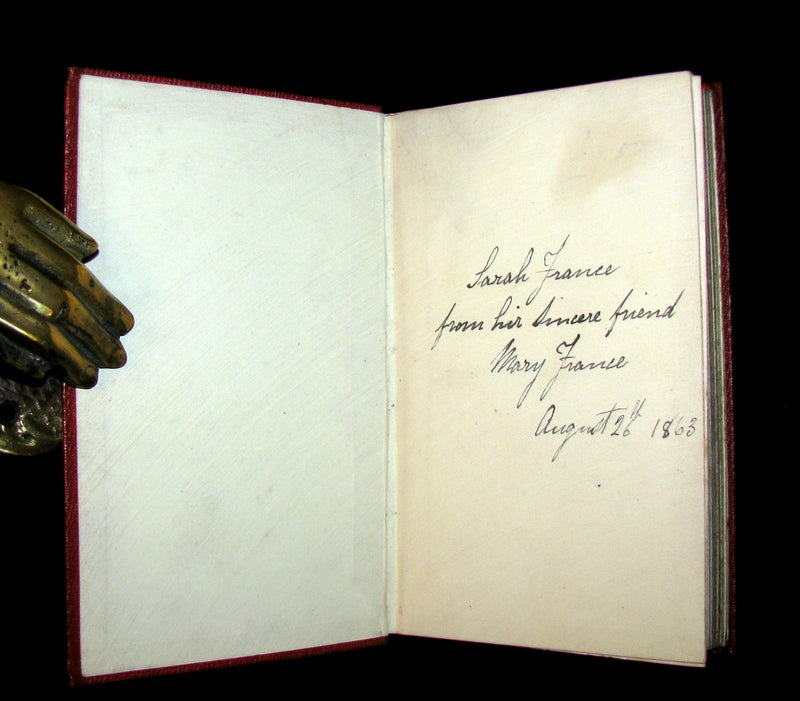 Sarah France
from her sincere friend
Mary France
August 26th 1863